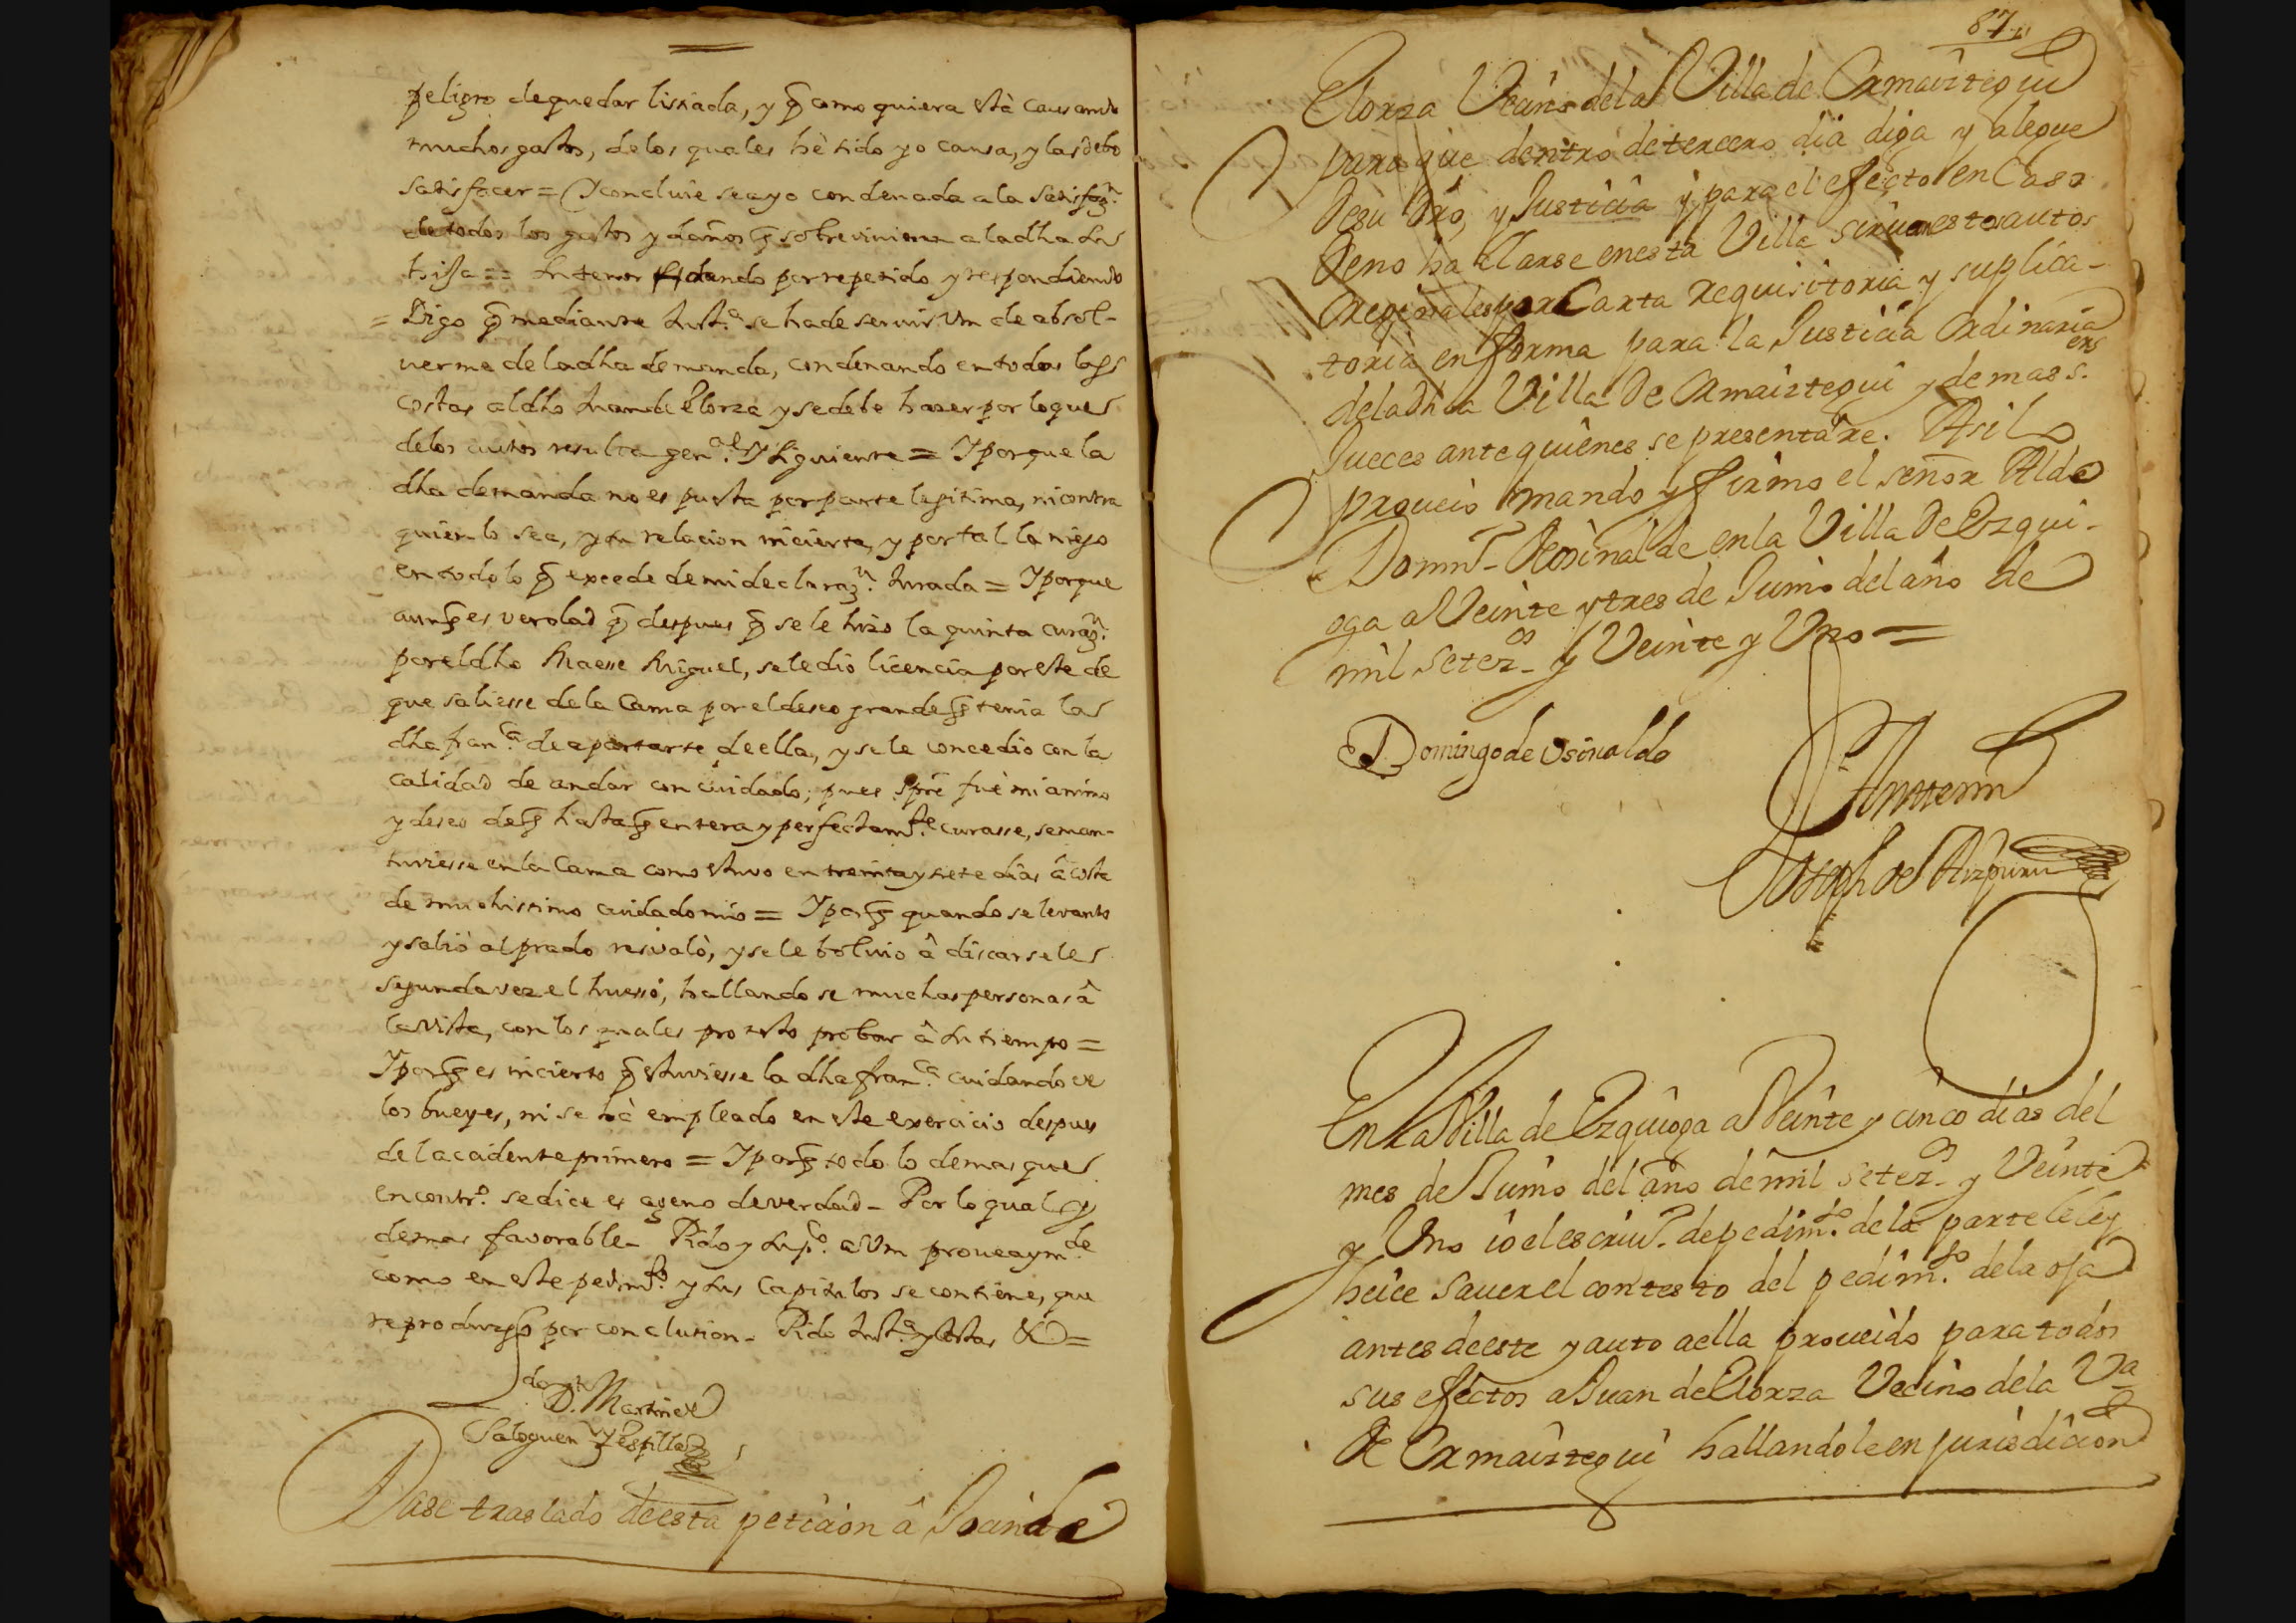 peligro de quedar lissiada, y q̃ como quiera està causando
muchos gastos, de los quales hè sido yo causa, y las debo
satisfacer = Y concluie sea yo condenada a la satisfaz.n
de todos los gastos y daños q̃ sobrevinieren a la dha su
hija == Su tenor dando por repetido y respondiendo
= Digo q̃ mediante Just.a se ha de servir Vm de absol-
uerme de la dha demanda, condenando en todas las
costas al dho Juan de Elorza y se debe hazer por lo que
de los autos resulta gen.al y siguiente = Y porque la
dha demanda no es puesta por parte legitima, ni contra
quien lo sea, y su relacion incierta, y por tal la niego
en todo lo q̃ excede de mi declaraz.n Jurada = Y porque
aunq̃ es verdad q̃ despues q̃ se le hizo la quinta curaz.n
por el dho Maese Miguel, se le dio licencia por este de
que saliesse de la Cama por el deseo grande q̃ tenia la
dha fran.ca de apartarse de ella, y se le concedio con la
calidad de andar con cuidado, pues spre fue mi animo
y deseo de q̃ hasta q̃ entera y perfectam.te curasse, se man-
tuviesse en la Cama como estuvo en treinta y siete dias â costa
de muchissimo cuidado mio = Y porq̃ quando se levanto
y saliò al prado resvalò, y se le bolvio â discarsele
segunda vez el huesso, hallandose muchas personas â
la vista, con los quales protesto probar â su tiempo =
Y porq̃ es incierto q̃ estuviesse la dha fran.ca cuidando de
los bueyes, ni se hà empleado en este exercicio despues
del accidente primero = Y porq̃ todo lo demas que
en contr.o se dice es ageno de verdad - Por lo qual y
demas favorable - Pido y sup.co a Vm provea y m.de
como en este pedim.to y sus Capitulos se contiene, que
reproduzgo por conclusion - Pido Just.a y costas &a =
D. Martin de
Dase traslado de esta peticion â Joan de
87
Elorza Vecino de la Villa de Ormaiztegui
para que dentro de tercero dia diga y alegue
de su dro, y Justicia y para el efecto en Caso
de no hallarse en esta Villa sirvan estos autos
originales por Carta requisitoria y suplica-
toria en forma para la Justicia Ordinaria
de la dha Villa de Ormaiztegui y demas s.res
Jueces ante quienes se presentare. Asi lo
proveio mando y firmo el señor Alde
Domin.o de Osinalde en la Villa de Ezqui-
oga a Veinte y tres de Junio del año de
mil setez.os y Veinte y Uno =
Domingo de Osinalde
Ante mi
Joseph de Aizpuru
En la Villa de Ezquioga a Veinte y cinco dias del
mes de Junio del año de mil setez.os y Veinte
y Uno io el escriu.o de pedim.to de la parte lei y
hice saver el contesto del pedim.to de la oja
antes de este y auto a ella proveido para todos
sus efectos a Juan de Elorza Vecino de la V.a
de Ormaiztegui hallandole en jurisdicion